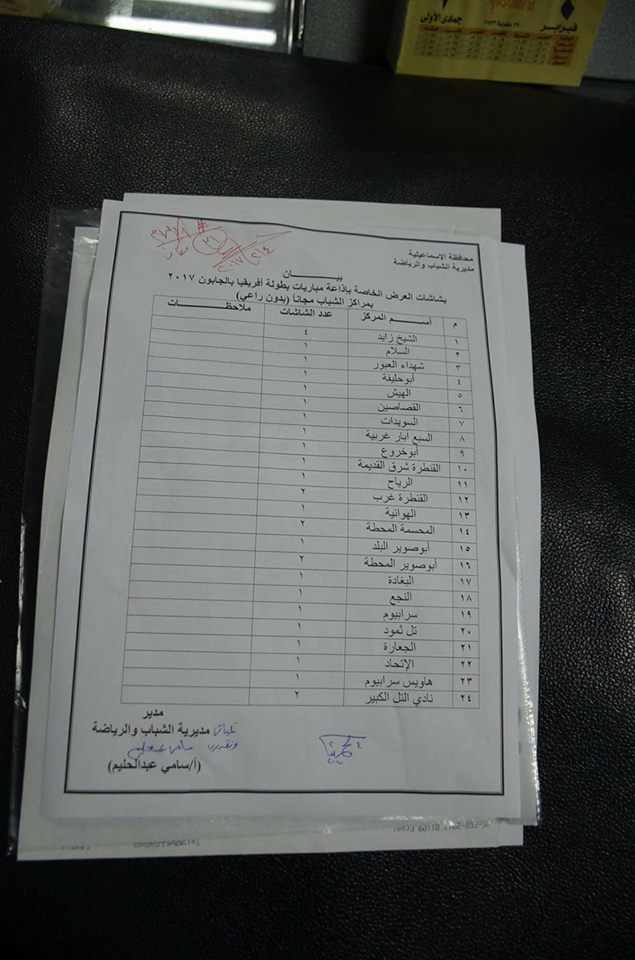 فبراير
جمادى الأولى
محافظة الإسماعيلية
مديرية الشباب والرياضة
بيـــــان
بشاشات العرض الخاصة بإذاعة مباريات بطولة أفريقيا بالجابون ٢٠١٧
بمراكز الشباب مجاناً (بدون راعي)
م أســـم المركز عدد الشاشات ملاحظـــات
١ الشيخ زايد ٤
٢ السلام ١
٣ شهداء العبور ١
٤ أبوخليفة ١
٥ الهيش ١
٦ القصاصين ١
٧ السويدات ١
٨ السبع أبار غربية ١
٩ أبوخروع ١
١٠ القنطرة شرق القديمة ١
١١ الرياح ١
١٢ القنطرة غرب ٢
١٣ الهوانية ١
١٤ المحسمة المحطة ٢
١٥ أبوصوير البلد ١
١٦ أبوصوير المحطة ٢
١٧ البغادة ١
١٨ النجع ١
١٩ سرابيوم ١
٢٠ تل ثمود ١
٢١ الجعارة ١
٢٢ الإتحاد ١
٢٣ هاويس سرابيوم ١
٢٤ نادي التل الكبير ٢
مدير
مديرية الشباب والرياضة
(أ/سامي عبدالحليم)